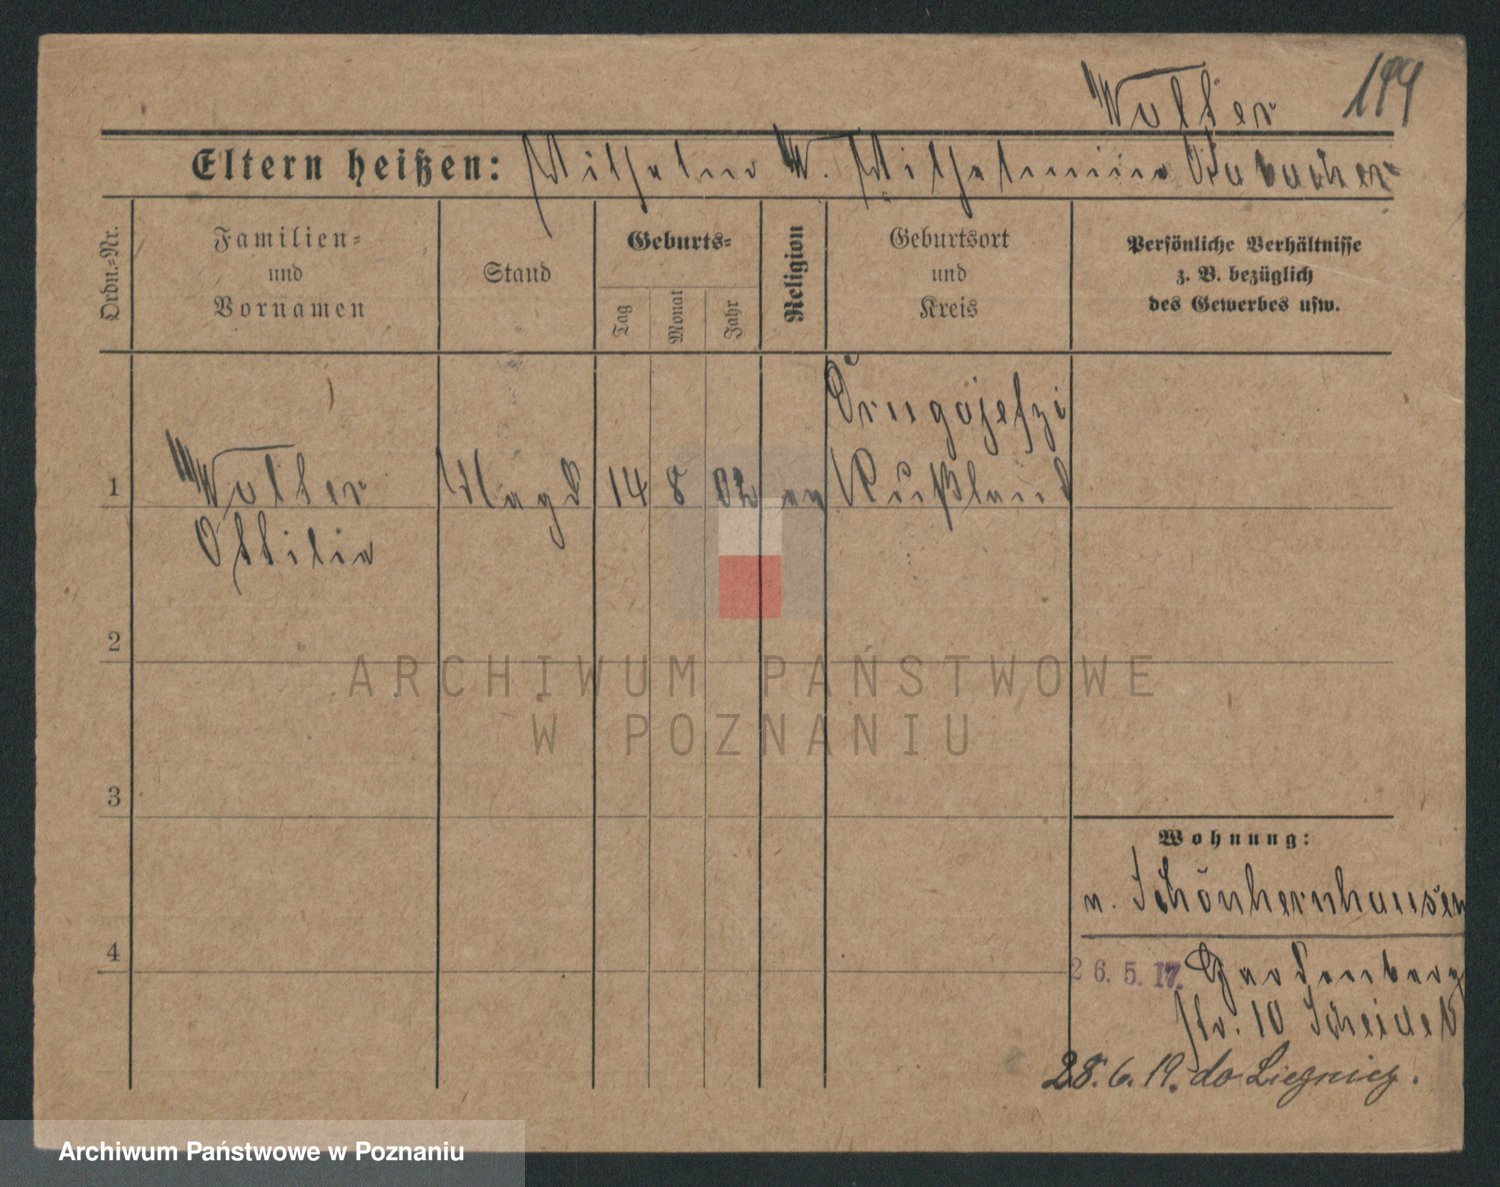 Walter 199
Eltern heißen: Wilhelm W. Wilhelmine
Ordn.-Nr.
Familien-
und
Vornamen
Stand
Geburts-
Tag
Monat
Jahr
Religion
Geburtsort
und
Kreis
Persönliche Verhältnisse
z. B. bezüglich
des Gewerbes usw.
1
Walter
Ottilie
Magd
14 8 02 ev
Rußland
2
3
4
ARCHIWUM PAŃSTWOWE
W POZNANIU
Wohnung:
n. Schönherrnhausen
26.5.17.
str. 10
28.6.19. do Liegnicy.
Archiwum Państwowe w Poznaniu